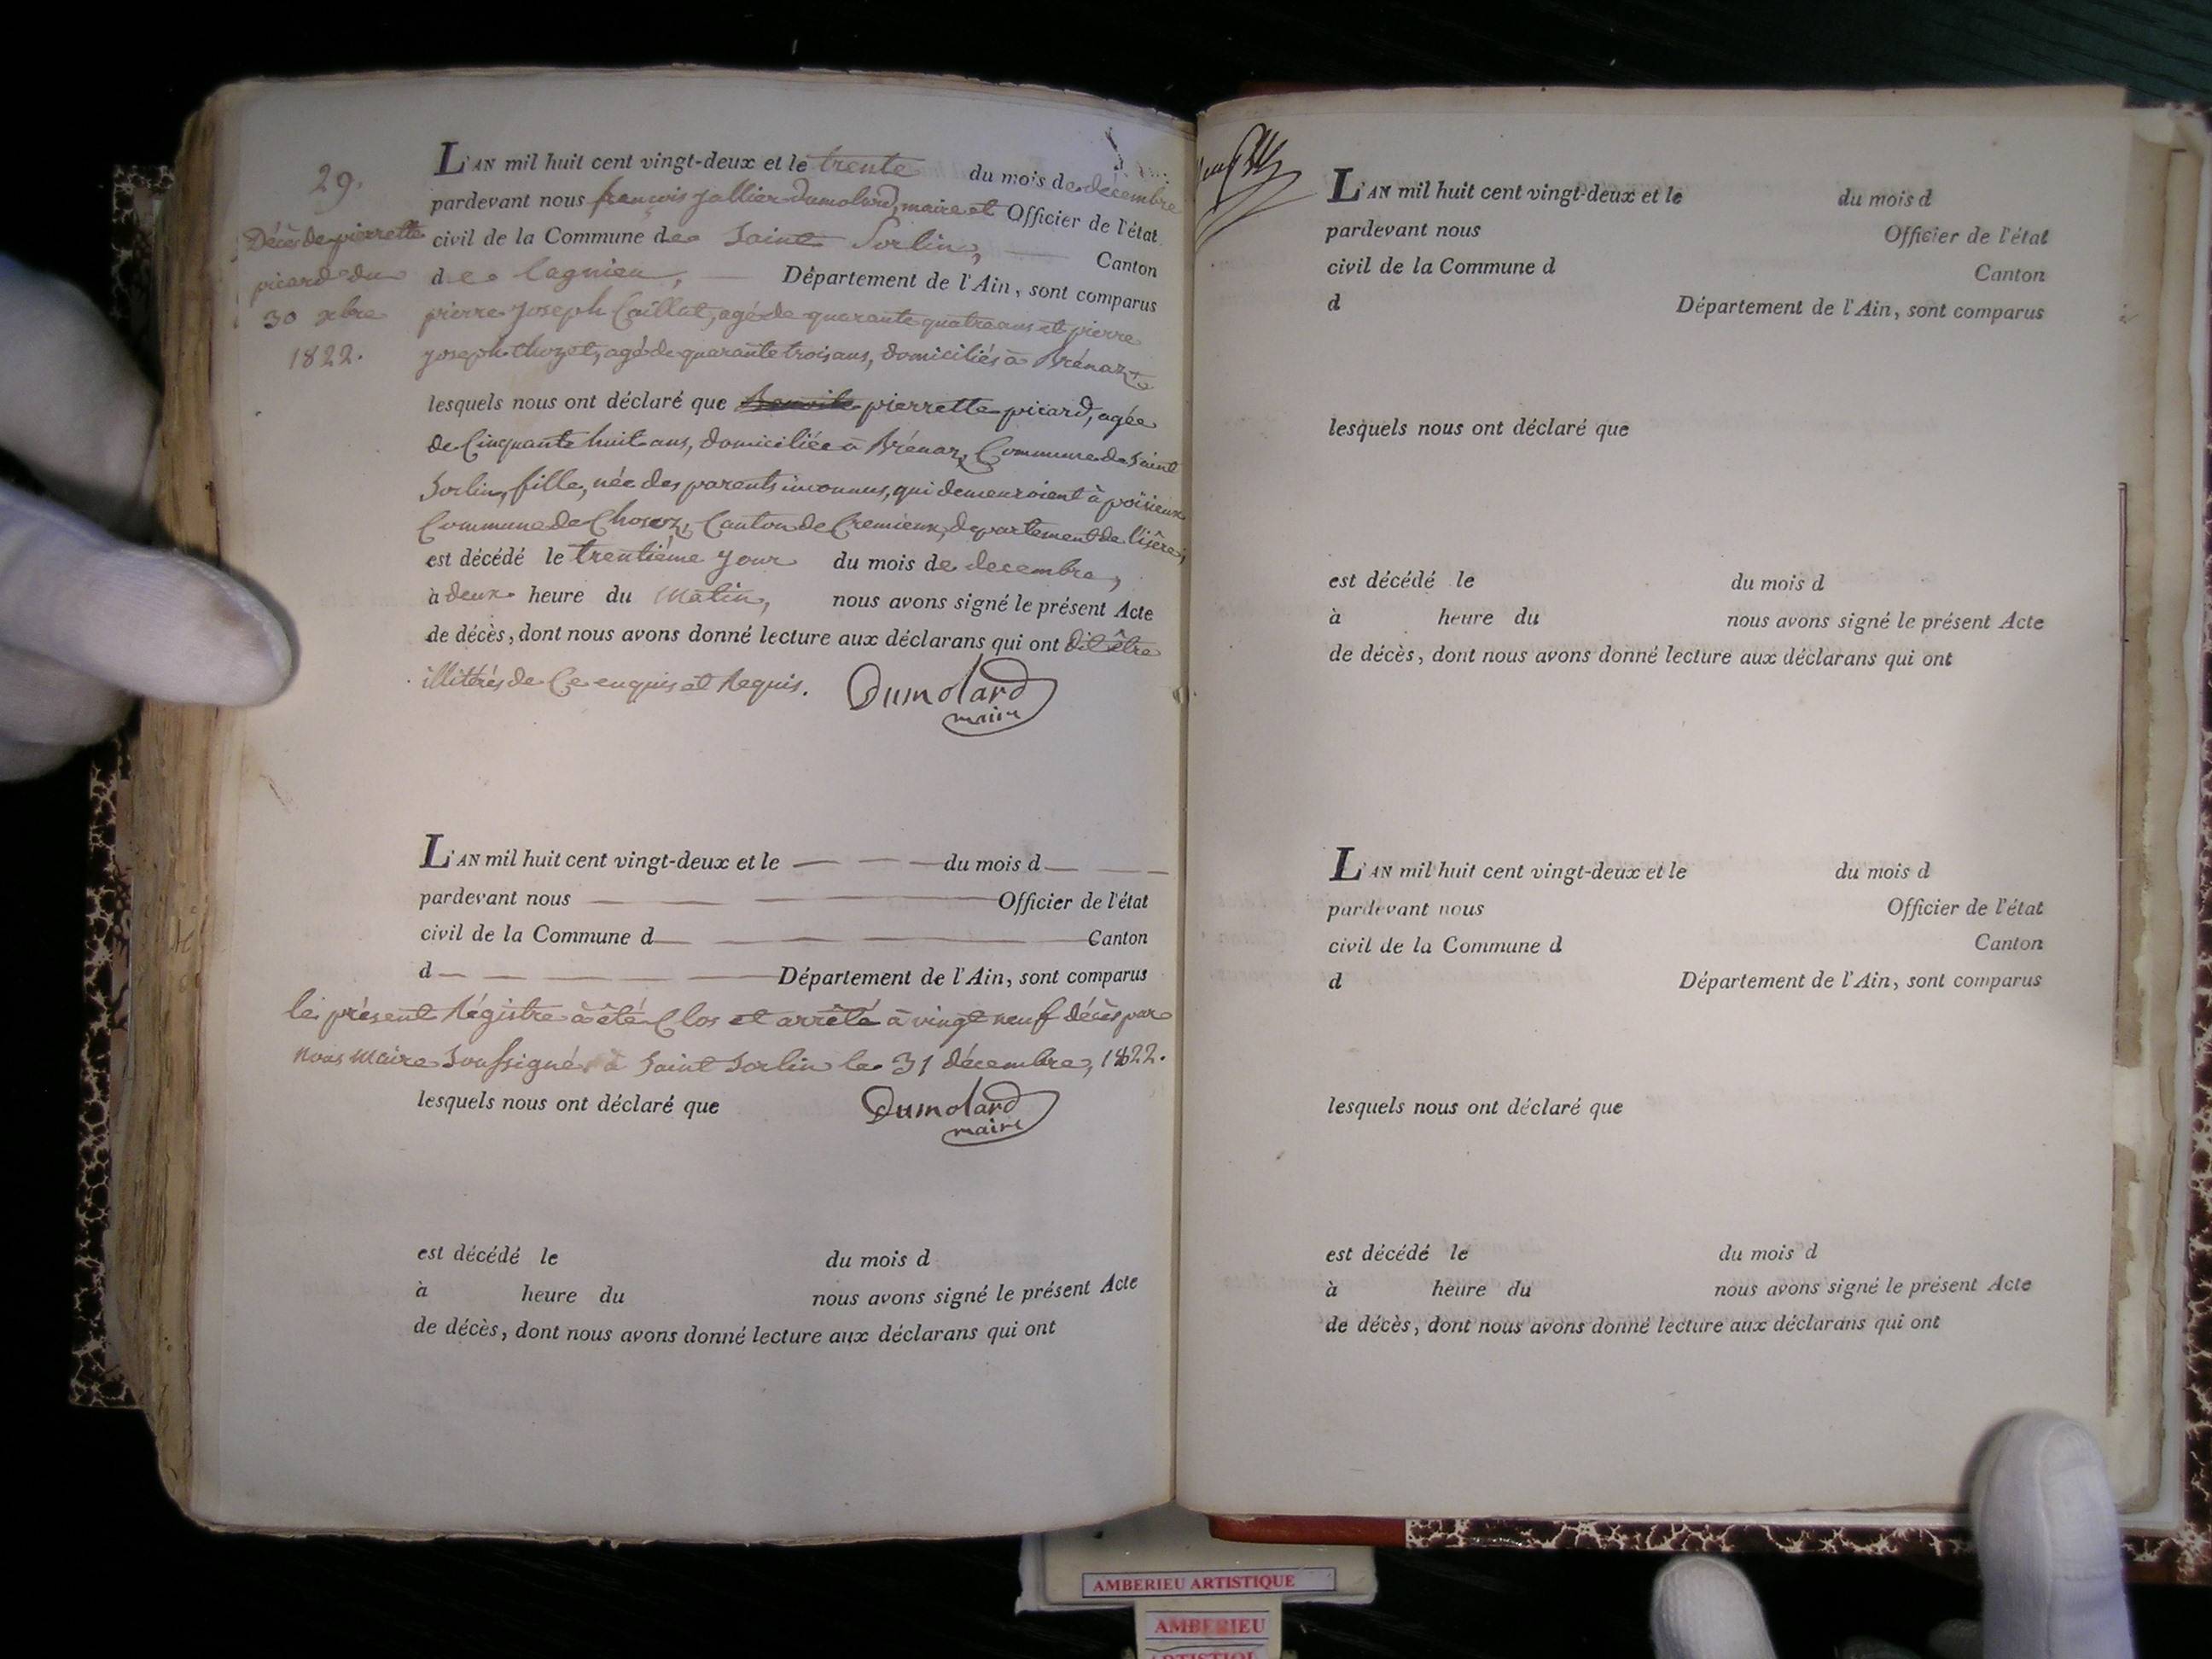 29.
Décès de pierrette
picard du
30 xbre
1822.
L'AN mil huit cent vingt-deux et le trente du mois de décembre
pardevant nous françois Jallier Dumolard, maire et Officier de l'état
civil de la Commune de Saint Sorlin, Canton
de lagnieu, Département de l'Ain, sont comparus
pierre Joseph Caillat, agé de quarante quatre ans et pierre
joseph thozet, agé de quarante trois ans, domiciliés à Brénaz
lesquels nous ont déclaré que Benoite pierrette picard, agée
de Cinquante huit ans, domiciliée à Brénaz, Commune de Saint
Sorlin, fille, née des parents inconnus, qui demeuroient à poisieux
Commune de Chosoz, Canton de Cremieux, departement de l'isêre,
est décédé le trentiéme jour du mois de decembre,
à deux heure du Matin, nous avons signé le présent Acte
de décès, dont nous avons donné lecture aux déclarans qui ont dit être
illitérés de Ce enquis et Requis. Dumolard
maire
L'AN mil huit cent vingt-deux et le du mois d
pardevant nous Officier de l'état
civil de la Commune d Canton
d Département de l'Ain, sont comparus
le présent Régistre à été Clos et arrêté à vingt neuf décès par
nous Maire Soussigné à Saint Sorlin le 31 décembre, 1822.
lesquels nous ont déclaré que Dumolard
maire
est décédé le du mois d
à heure du nous avons signé le présent Acte
de décès, dont nous avons donné lecture aux déclarans qui ont
L'AN mil huit cent vingt-deux et le du mois d
pardevant nous Officier de l'état
civil de la Commune d Canton
d Département de l'Ain, sont comparus
lesquels nous ont déclaré que
est décédé le du mois d
à heure du nous avons signé le présent Acte
de décès, dont nous avons donné lecture aux déclarans qui ont
L'AN mil huit cent vingt-deux et le du mois d
pardevant nous Officier de l'état
civil de la Commune d Canton
d Département de l'Ain, sont comparus
lesquels nous ont déclaré que
est décédé le du mois d
à heure du nous avons signé le présent Acte
de décès, dont nous avons donné lecture aux déclarans qui ont
AMBERIEU ARTISTIQUE
AMBERIEU
ARTISTIQUE